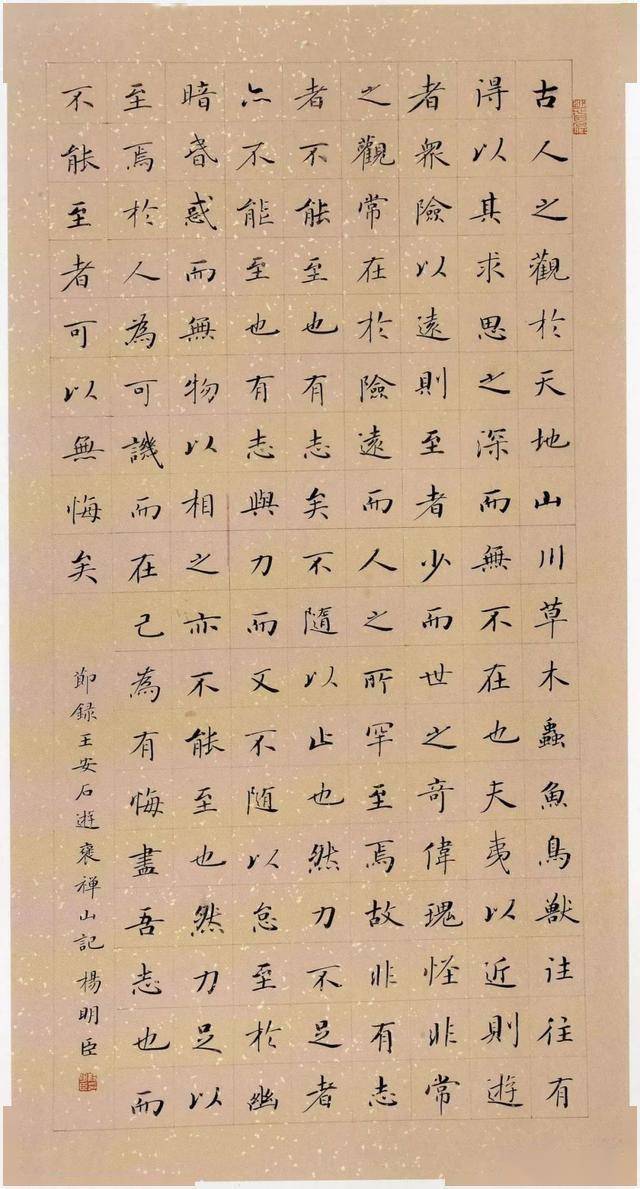 古人之觀於天地山川草木蟲魚鳥獸往往有
得以其求思之深而無不在也夫夷以近則遊
者衆險以遠則至者少而世之奇偉瑰怪非常
之觀常在於險遠而人之所罕至焉故非有志
者不能至也有志矣不隨以止也然力不足者
亦不能至也有志與力而又不随以怠至於幽
暗昏惑而無物以相之亦不能至也然力足以
至焉於人為可譏而在己為有悔盡吾志也而
不能至者可以無悔矣
節錄王安石遊褒禅山記 楊明臣